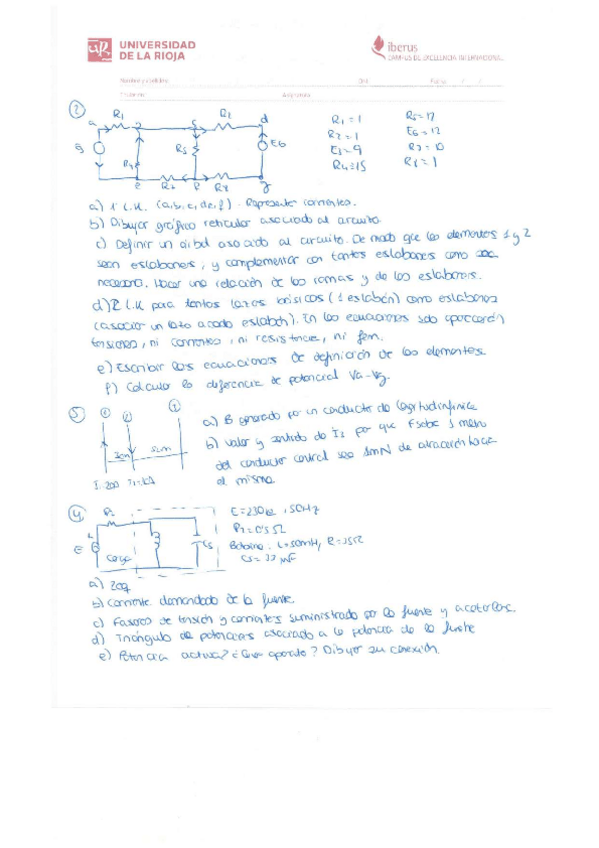 UNIVERSIDAD
DE LA RIOJA
iberus
CAMPUS DE EXCELENCIA INTERNACIONAL
②
R1
R2
a
d
R5
E6
R4
e
R7
f
R8
g
R1 = 1
R2 = 1
E3 = 9
R4 = 15
R5 = 12
E6 = 12
R7 = 10
R8 = 1
a) 1ª L.K. (a, b, c, d, e, f). Representar corrientes.
b) Dibujar gráfico reticular asociado al circuito
c) Definir un árbol asociado al circuito. De modo que los elementos 1 y 2
sean eslabones, y complementar con tantos eslabones como sea
necesario. Hacer una relación de las ramas y de los eslabones.
d) 2 L.K para tantos lazos básicos (1 eslabón) como eslabones
(asociar un lazo a cada eslabón). En las ecuaciones solo aparecerán
tensiones, ni corrientes, ni resistencias, ni fem.
e) Escribir las ecuaciones de definición de los elementos.
f) Calcular la diferencia de potencial Va-Vg.
a) B generado por un conductor de longitud infinita
b) Valor y sentido de I2 por que F sobre 1 metro
del conductor central sea 1mN de atracción hacia
el mismo.
④
E=230 , 50Hz
R2=0'5 Ω
Bobina: L=50mH, R=35Ω
E
Carga
a) Zeq
b) Corriente demandada de la fuente.
c) Fasores de tensión y corrientes suministrado por la fuente y acotarlos.
d) Triángulo de potencias asociado a la potencia de la fuente
e) Potencia activa? ¿Que aparato? Dibujar su conexión.